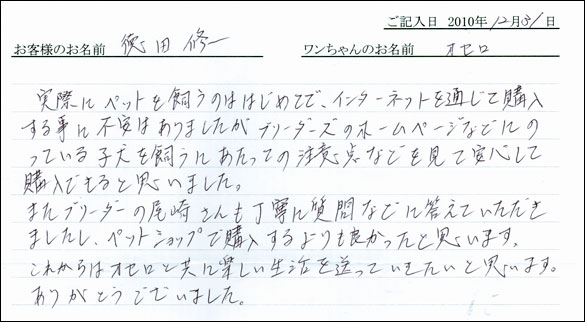 ご記入日 2010年12月31日
お客様のお名前 徳田修一 ワンちゃんのお名前 オセロ
実際にペットを飼うのははじめてで、インターネットを通じて購入
する事に不安はありましたがブリーダーズのホームページなどにの
っている子犬を飼うにあたっての注意点などを見て安心して
購入できると思いました。
またブリーダーの尾崎さんも丁寧に質問などに答えていただき
ましたし、ペットショップで購入するよりも良かったと思います。
これからはオセロと共に楽しい生活を送っていきたいと思います。
ありがとうございました。